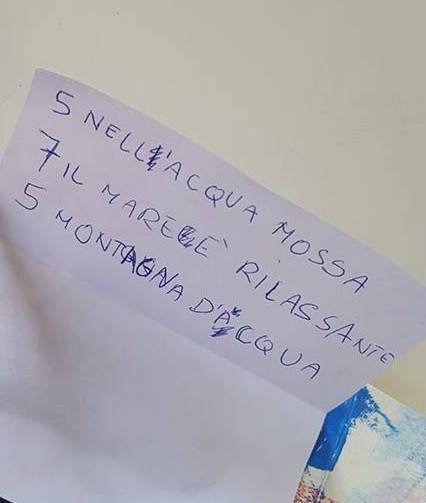 5 NELL'ACQUA MOSSA
7 IL MARE È RILASSANTE
5 MONTAGNA D'ACQUA